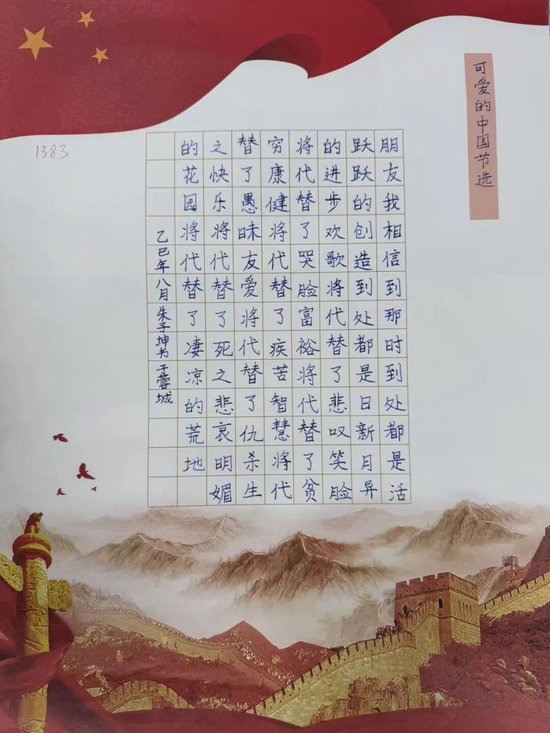 可爱的中国节选
朋友我相信到那时到处都是活
跃跃的创造到处都是日新月异
的进步欢歌将代替了悲叹笑脸
将代替了哭脸富裕将代替了贫
穷康健将代替了疾苦智慧将代
替了愚昧友爱将代替了仇杀生
之快乐将代替了死之悲哀明媚
的花园将代替了凄凉的荒地
乙巳年八月朱子坤书于蓉城
1383